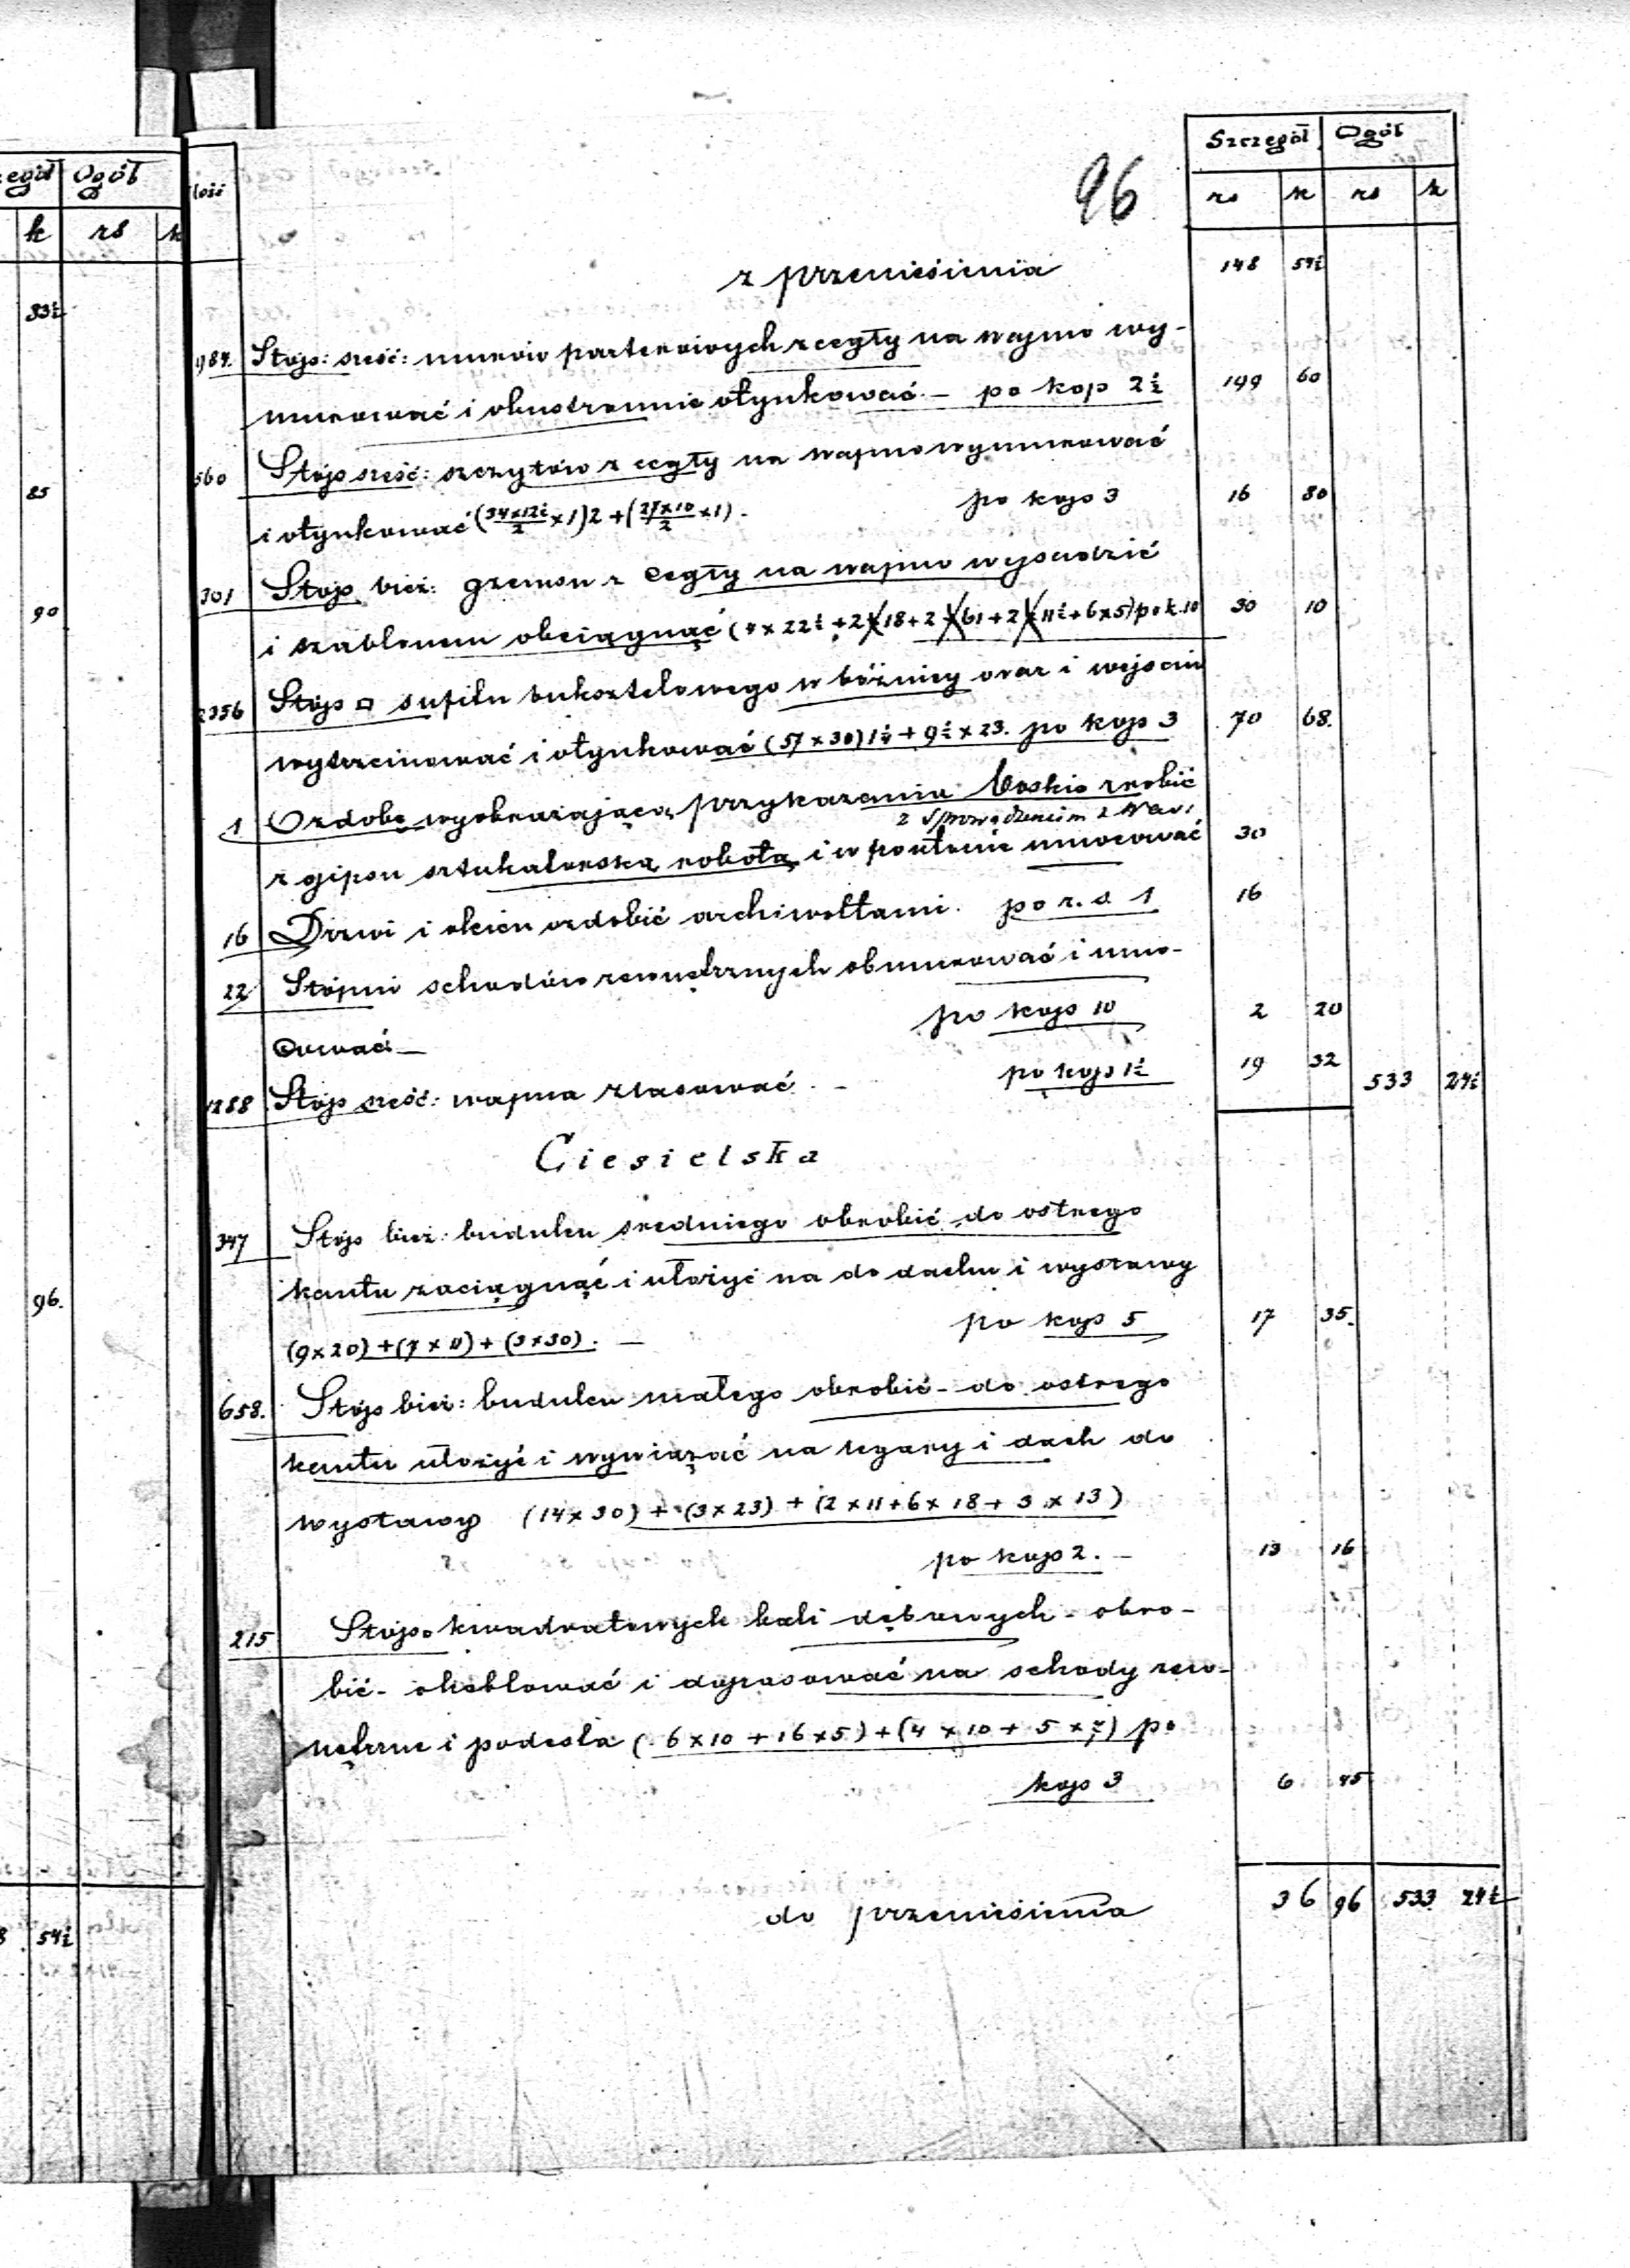 egół Ogół
k rs k
83½
85
90
96.
54½
96
Szczegół Ogół
Ilość rs k rs k
z przeniesienia 148 54½
Stóp: sześć: murów parterowych z cegły na wapno wy-
murować i obustronnie otynkować. — po kop 2½ 149 60
560 Stóp sześć: szczytów z cegły na wapno wymurować
i otynkować (34×12½/2 ×1)2 + (27×10/2 ×1). po kop 3 16 80
301 Stóp bież: gzemsu z cegły na wapno wysadzić
i szablonem obciągnąć (4 × 22½ + 2×18 + 2×61 + 2×11½ + 6×5) po k. 10 30 10
2356 Stóp □ sufitu buksztelowego w bóżnicy oraz i wejściu
wytrzcinować i otynkować (57 × 30)1¼ + 9½ × 23. po kop 3 70 68.
1 Ozdobę wyobrażającą przykazania Boskie zrobić
z sprowadzeniem z
z gipsu sztukatorską robotą i w froncie umocować 30
16 Drzwi i okien ozdobić archiwoltami. po r. s. 1 16
22 Stopni schodów zewnętrznych obmurować i umo-
cować — po kop 10 2 20
1288 Stóp sześć: wapna zlasować. — po kop 1½ 19 32 533 24½
Ciesielska
347 Stóp bież: budulcu średniego obrobić do ostrego
kantu zaciągnąć i ułożyć na do dachu i wystawy
(9×20) + (7 × 11) + (3×30). — po kop 5 17 35.
658. Stóp bież: budulcu małego obrobić - do ostrego
kantu ułożyć i wywiązać na legary i dach do
wystawy (14×30) + (3×23) + (2×11 + 6×18 + 3 × 13)
po kop 2. — 13 16
215 Stóp kwadratowych bali dębowych - obro-
bić - oheblować i dopasować na schody zew-
nętrzne i podesta (6×10 + 16×5) + (4 × 10 + 5 × 7) po
kop 3 6 45
do przeniesienia 36 96 533 24½